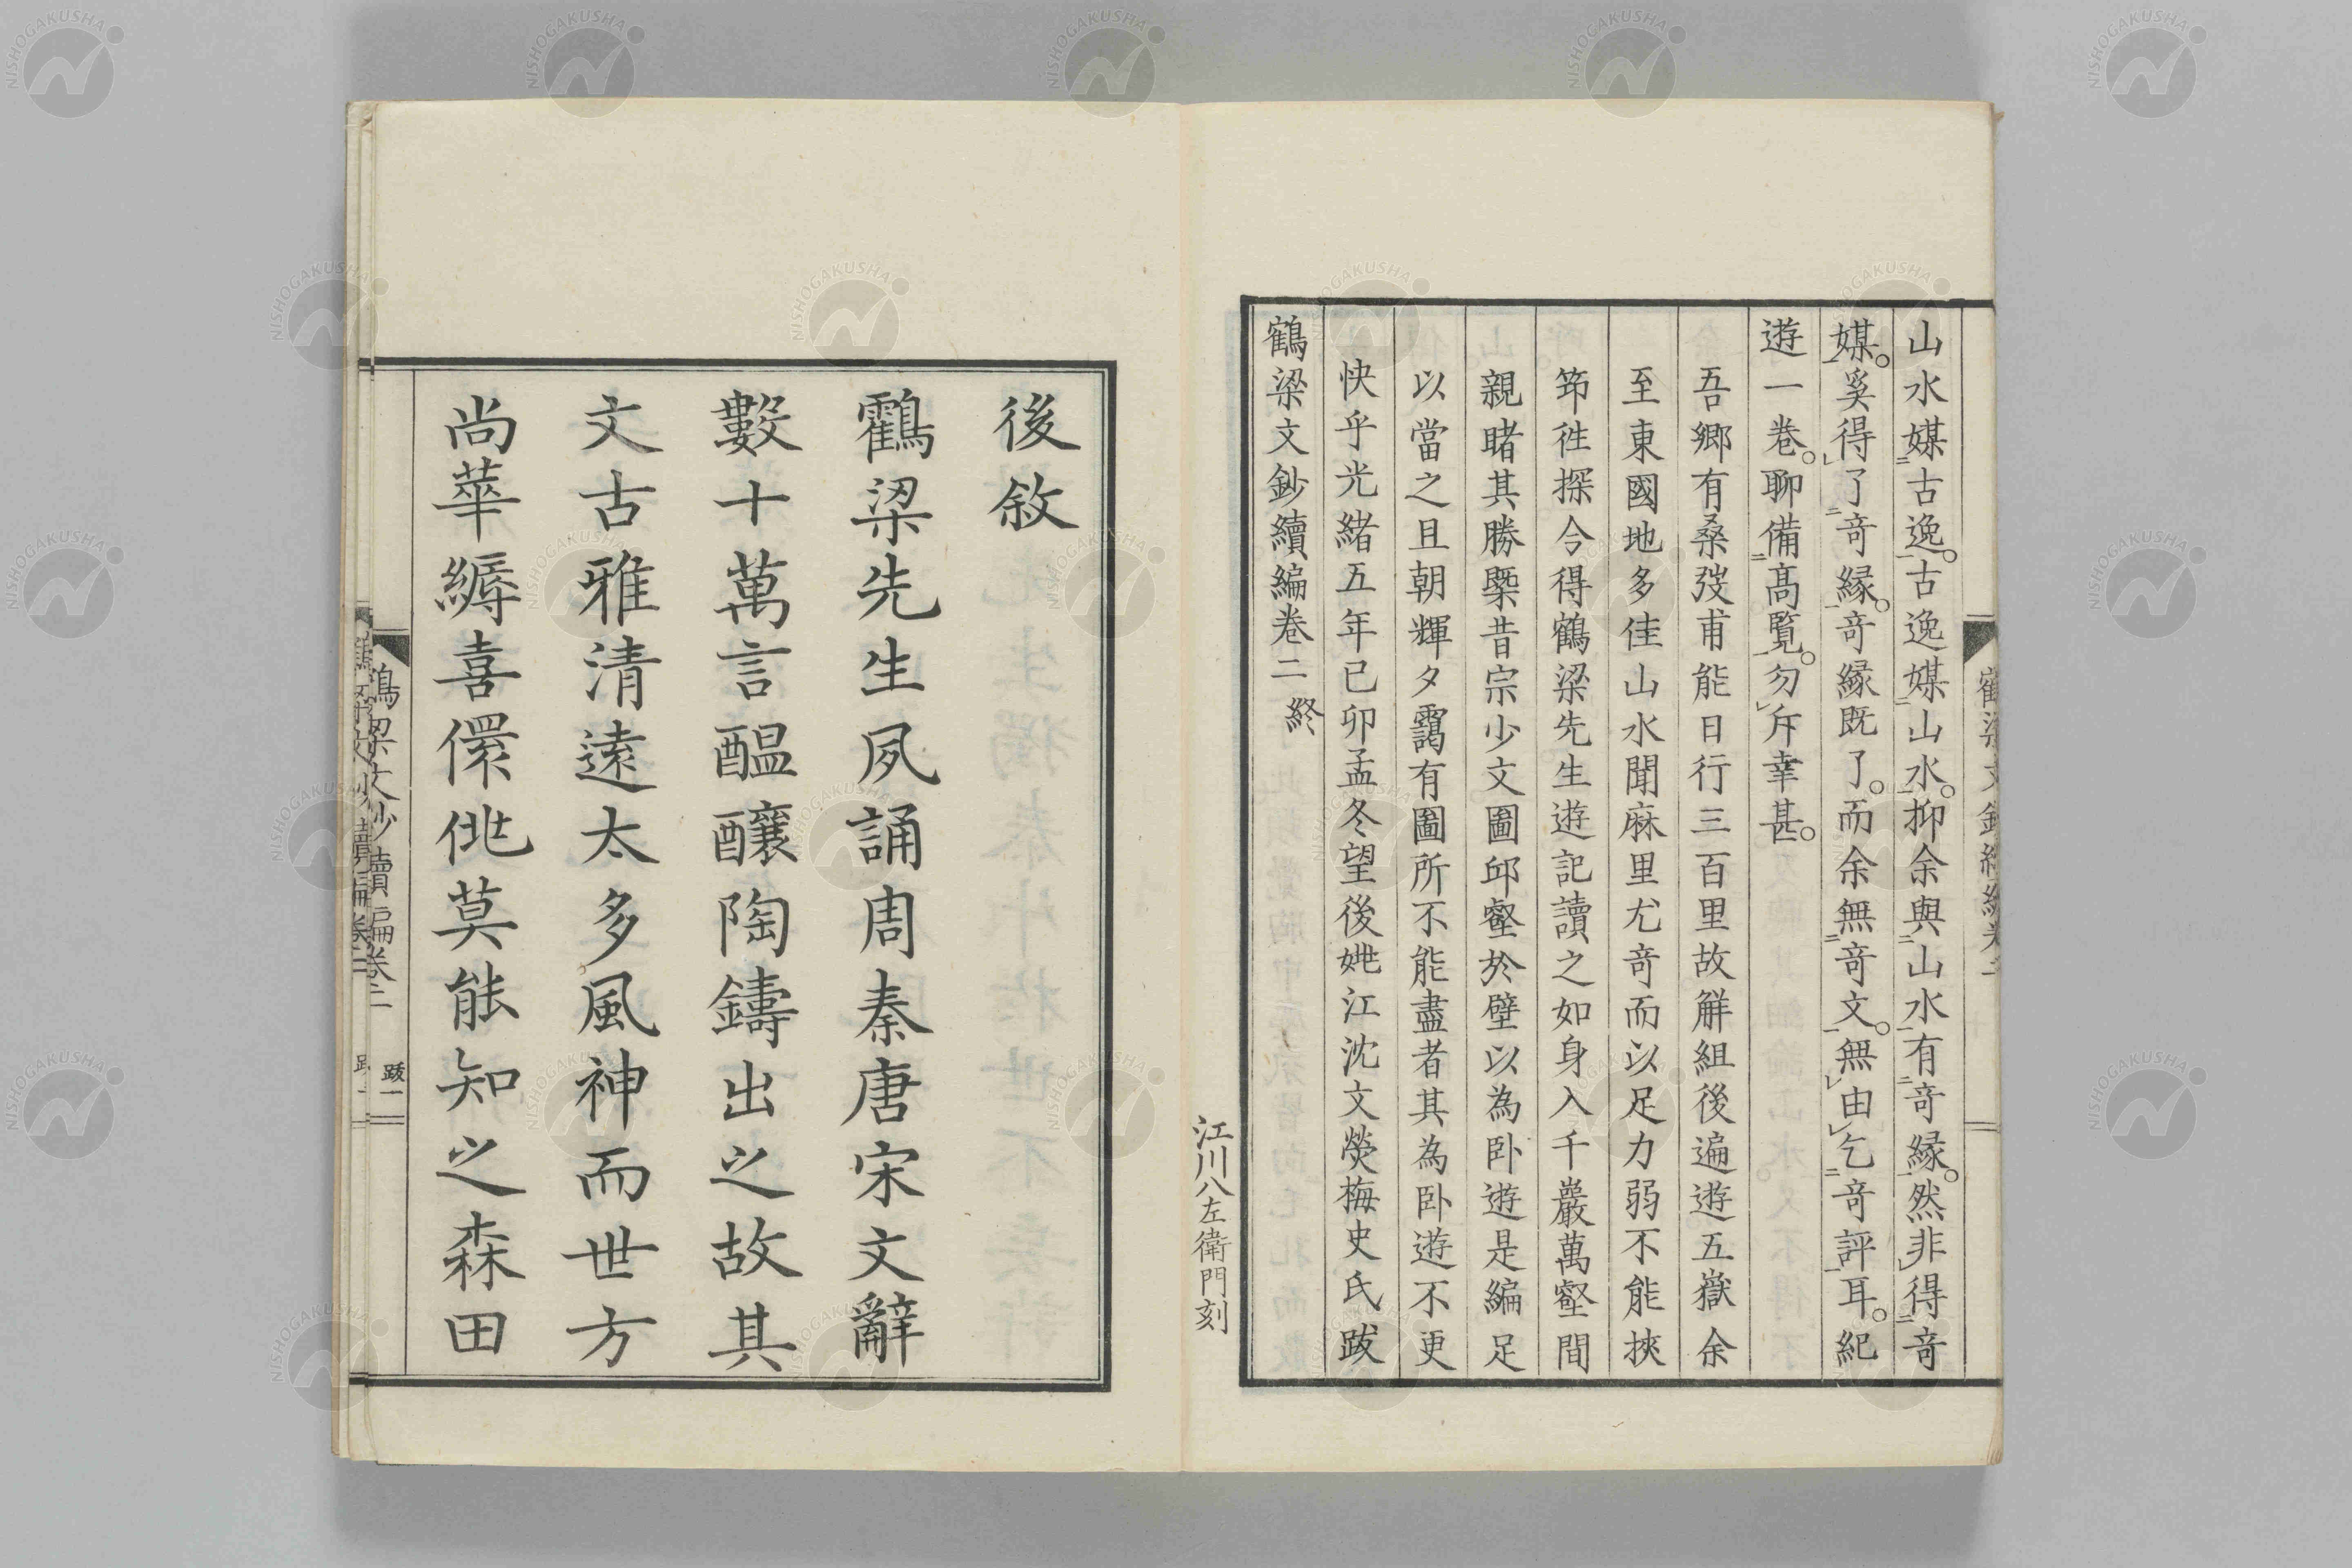 山水媒古逸。古逸媒山水。抑余與山水有奇縁。然非得奇
媒。奚得了奇縁。奇縁既了。而余無奇文。無由乞奇評耳。紀
遊一卷。聊備高覧。勿斥幸甚。
吾鄉有桑弢甫能日行三百里故觧組後遍遊五嶽余
至東國地多佳山水聞麻里尤奇而以足力弱不能挾
筇徃探今得鶴梁先生遊記讀之如身入千巖萬壑間
親睹其勝槩昔宗少文圖邱壑於壁以為卧遊是編足
以當之且朝輝夕靄有圖所不能盡者其為卧遊不更
快乎光緒五年己卯孟冬望後姚江沈文熒梅史氏跋
鶴梁文鈔續編巻二 終
江川八左衛門刻
後敘
鸖梁先生夙誦周秦唐宋文辭
數十萬言醖釀陶鑄出之故其
文古雅清遠太多風神而世方
尚華縟喜儇佻莫能知之森田
鶴梁文鈔續編巻二 跋一
NISHOGAKUSHA